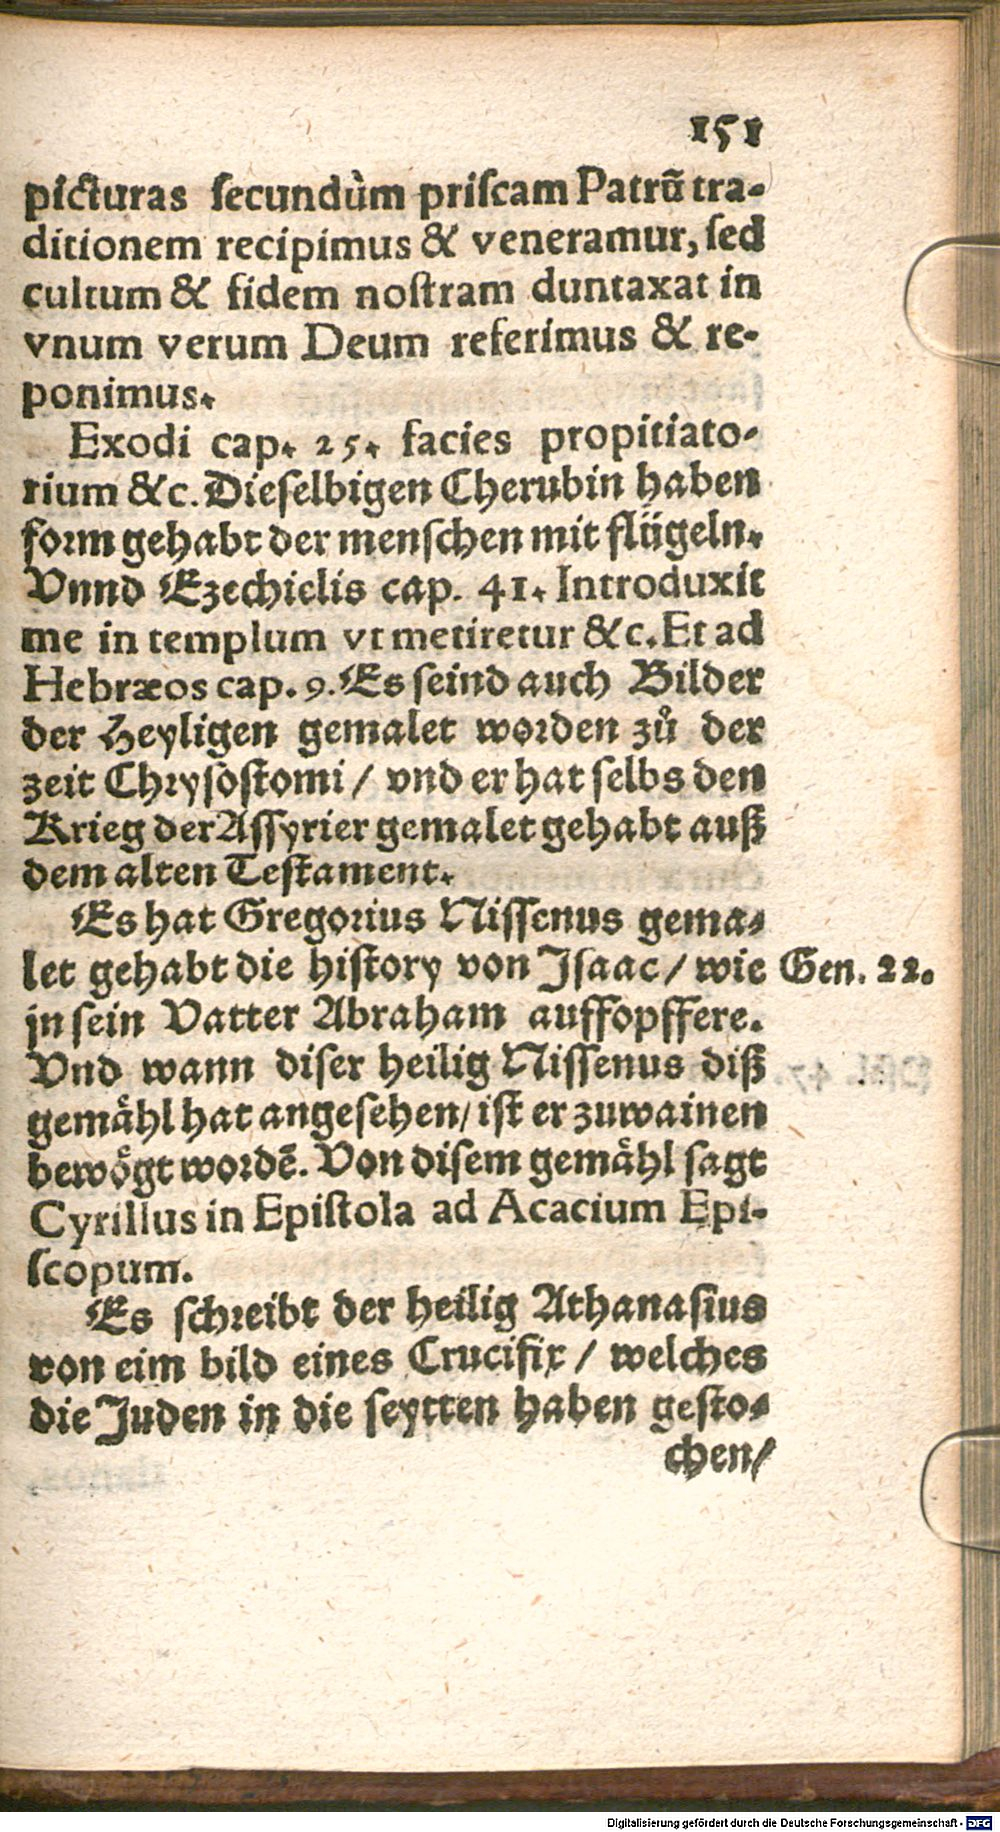 151
picturas secundùm priscam Patrū tra-
ditionem recipimus & veneramur, sed
cultum & fidem nostram duntaxat in
vnum verum Deum referimus & re-
ponimus.
Exodi cap. 25. facies propitiato-
rium &c. Dieselbigen Cherubin haben
form gehabt der menschen mit flügeln.
Vnnd Ezechielis cap. 41. Introduxit
me in templum vt metiretur &c. Et ad
Hebræos cap. 9. Es seind auch Bilder
der Heyligen gemalet worden zů der
zeit Chrysostomi / vnd er hat selbs den
Krieg der Assyrier gemalet gehabt auß
dem alten Testament.
Es hat Gregorius Nissenus gema-
let gehabt die history von Isaac / wie Gen. 22.
jn sein Vatter Abraham auffopffere.
Vnd wann diser heilig Nissenus diß
gemåhl hat angesehen / ist er zuwainen
bewögt wordē. Von disem gemåhl sagt
Cyrillus in Epistola ad Acacium Epi-
scopum.
Es schreibt der heilig Athanasius
von eim bild eines Crucifix / welches
die Juden in die seytten haben gesto-
chen /
Digitalisierung gefördert durch die Deutsche Forschungsgemeinschaft - DFG